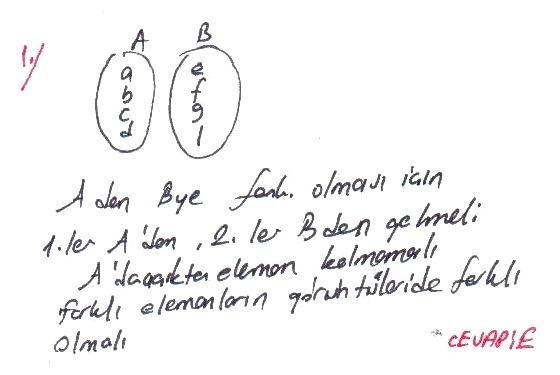 1.)
A B
a e
b f
c g
d l
A dan Bye fonk. olması için
1. ler A'dan, 2. ler B den gelmeli
A'da açıkta eleman kalmamalı
farklı elemanların görüntüleride farklı
olmalı
CEVAP:E